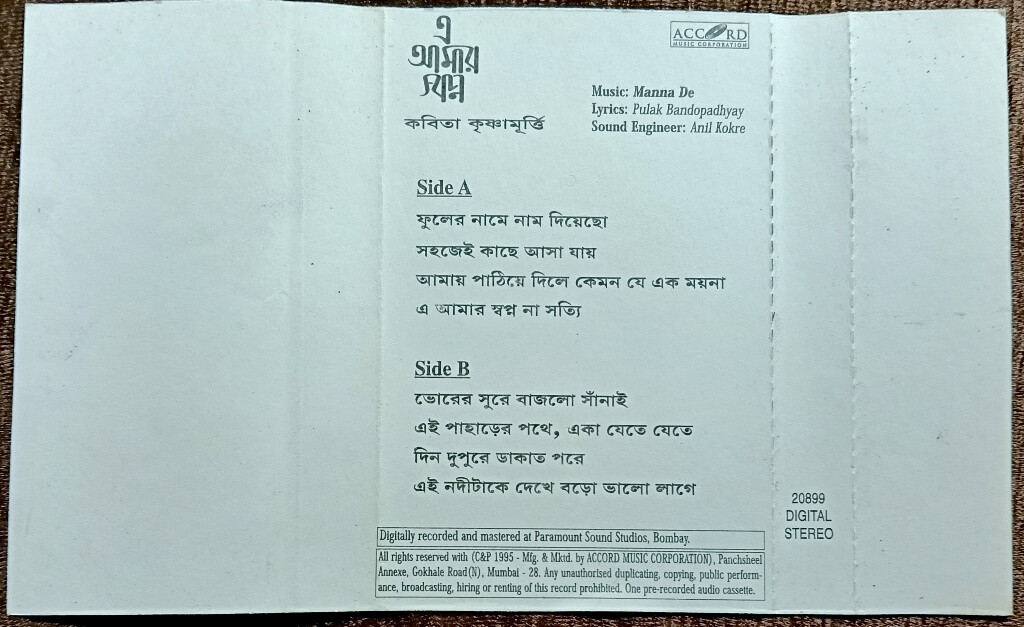 এ
আমার
স্বপ্ন
কবিতা কৃষ্ণামূর্ত্তি
ACCORD
MUSIC CORPORATION
Music: Manna De
Lyrics: Pulak Bandopadhyay
Sound Engineer: Anil Kokre
Side A
ফুলের নামে নাম দিয়েছো
সহজেই কাছে আসা যায়
আমায় পাঠিয়ে দিলে কেমন যে এক ময়না
এ আমার স্বপ্ন না সত্যি
Side B
ভোরের সুরে বাজলো সাঁনাই
এই পাহাড়ের পথে, একা যেতে যেতে
দিন দুপুরে ডাকাত পরে
এই নদীটাকে দেখে বড়ো ভালো লাগে
Digitally recorded and mastered at Paramount Sound Studios, Bombay.
All rights reserved with (C&P 1995 - Mfg. & Mktd. by ACCORD MUSIC CORPORATION), Panchsheel
Annexe, Gokhale Road (N), Mumbai - 28. Any unauthorised duplicating, copying, public perform-
ance, broadcasting, hiring or renting of this record prohibited. One pre-recorded audio cassette.
20899
DIGITAL
STEREO